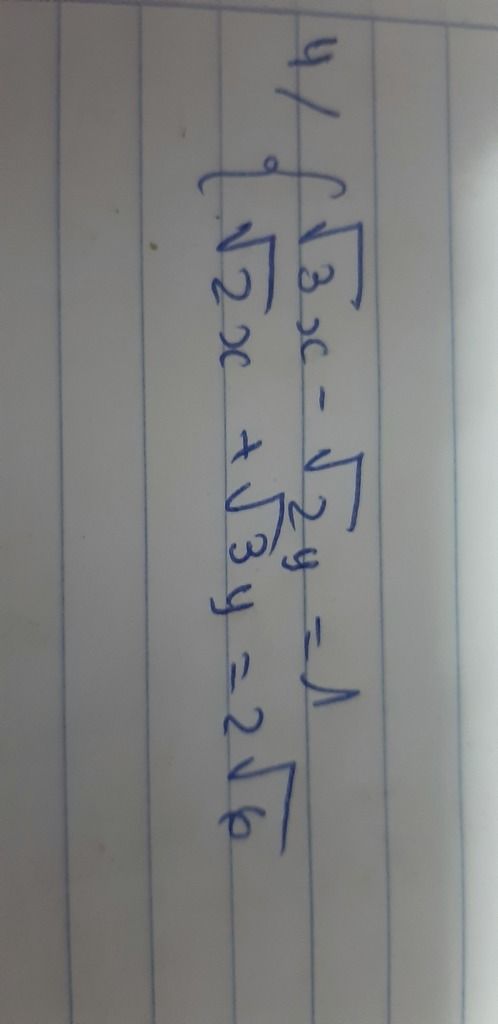 4/ { √3x - √2y = 1
√2x + √3y = 2√6